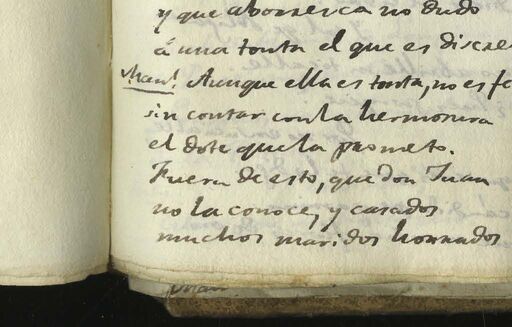 y que aborresca no dudo
á una tonta el que es discre
Man! Aunque ella es tonta, no es fe
sin contar con la hermosura
el dote que la prometo.
Fuera de esto, que don Juan
no la conoce, y casados
muchos maridos honrados